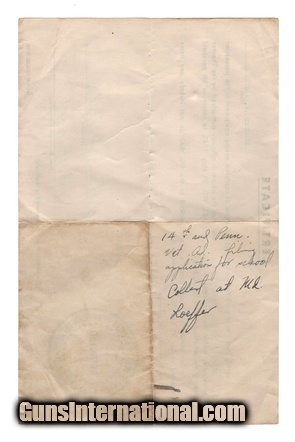 14th and Penn.
Vet Ad. filing
application for school
Collect at Md.
Loeffer
GunsInternational.com